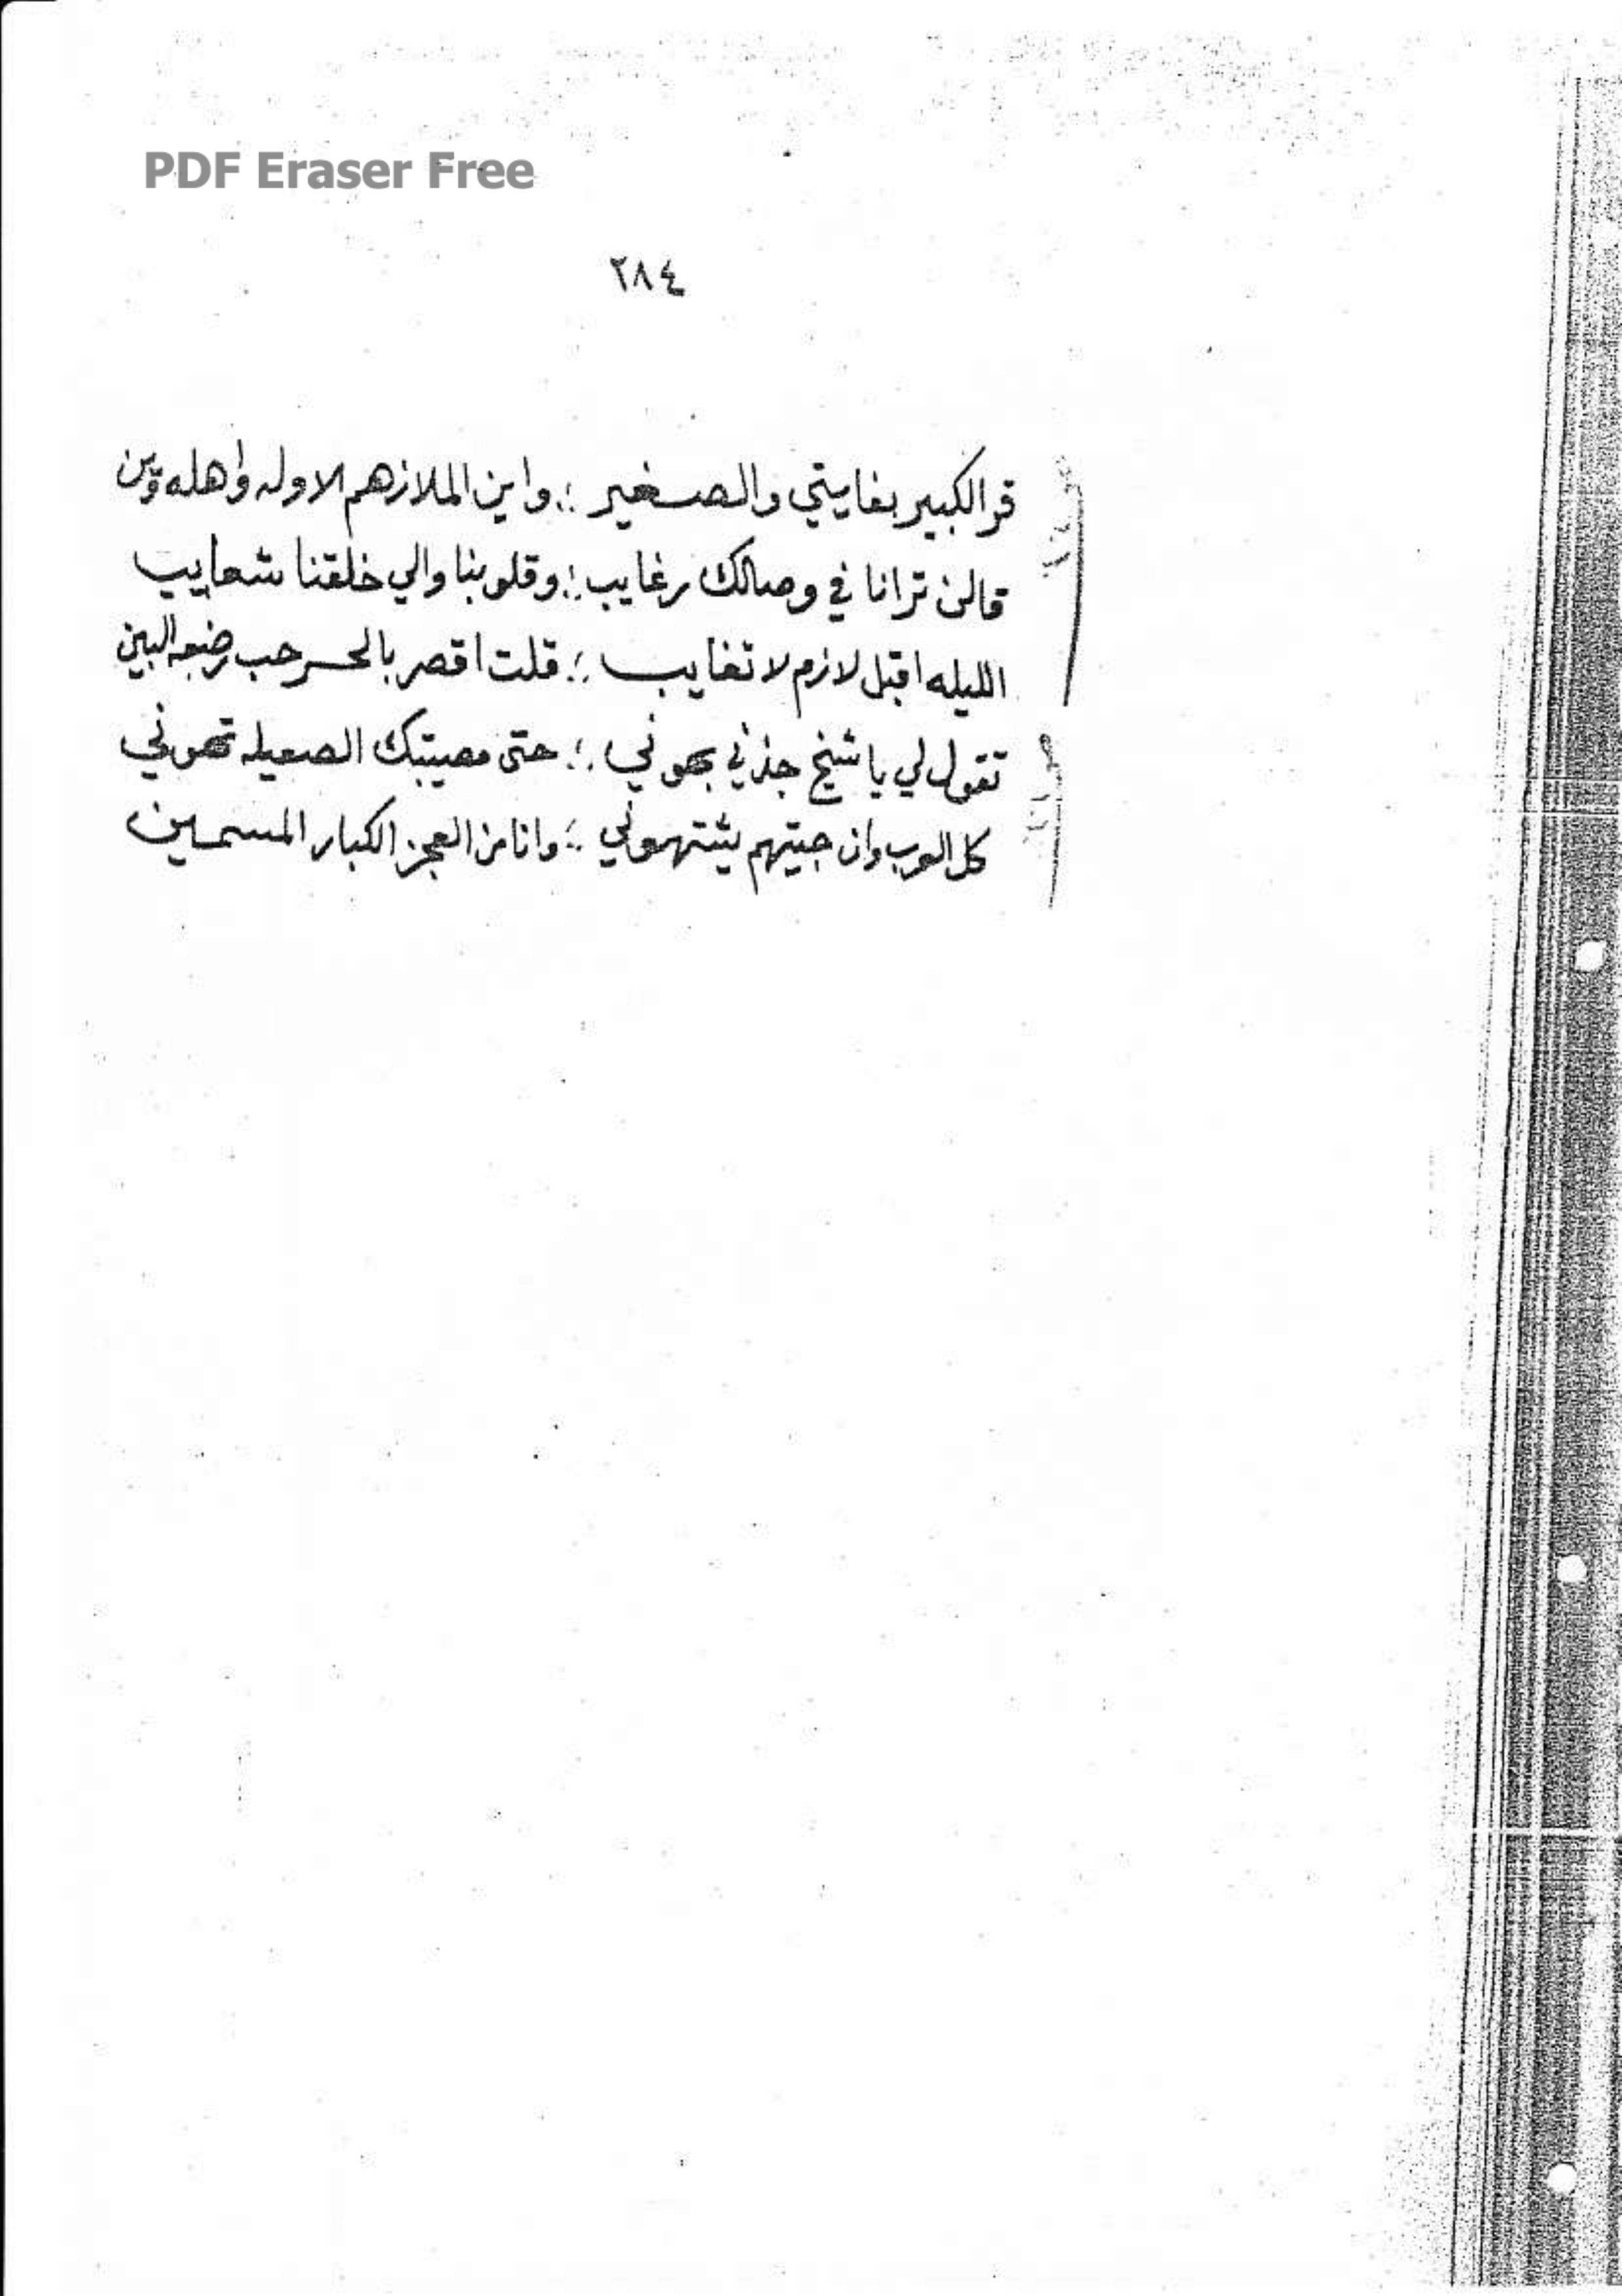 PDF Eraser Free
٢٨٤
قر الكبير بغايتي والصغير :. واين الملازهم الاوله واهله وين
قالن ترانا في وصالك رغايب :. وقلوبنا والي خلقنا شعايب
الليله اقبل لازم لا تغايب :. قلت اقصر بالحسر حب البين
تقول لي يا شيخ جذني بهوني :. حتى مصيبتك الصعيله تهوني
كل العرب وان جيتهم يشتهوني :. وانا من العجز الكبار المسمين